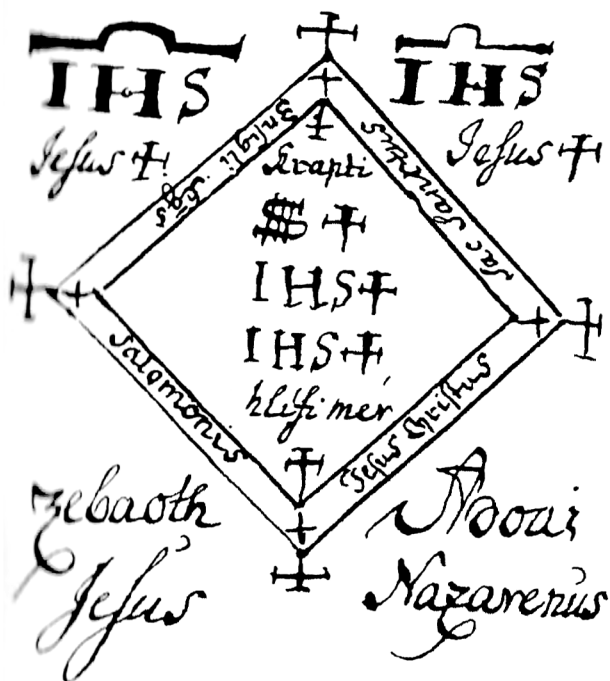 IHS
Jesus +
IHS
Jesus +
Insigli Sigs
Sac Sanctus
Salomonis
Jesus Christus
Krapti
+
IHS+
IHS+
hlifi mér
Zebaoth
Jesus
Adonai
Nazarenus